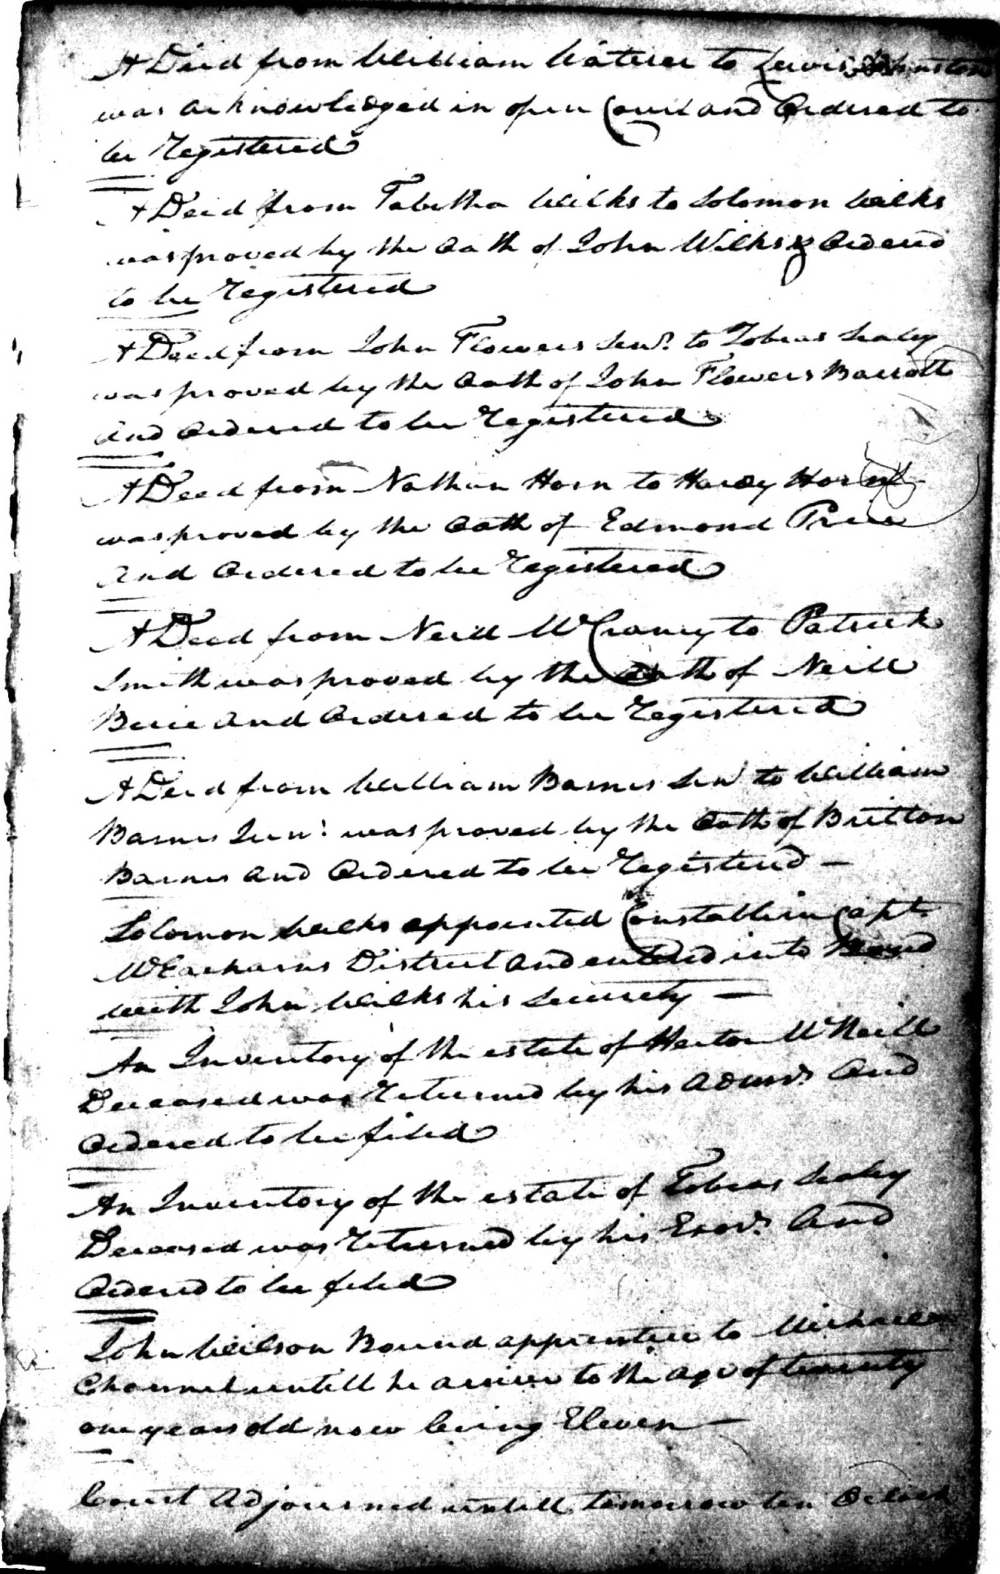 A Deed from William Waters to Lewis Johnston
was acknowledged in open Court and Ordered to
be Registered
A Deed from Tabitha Wilks to Solomon Wilks
was proved by the Oath of John Wilks & Ordered
to be Registered
A Deed from John Flowers Senr. to Tobias Sealy
was proved by the Oath of John Flowers Barrott
And Ordered to be Registered
A Deed from Nathan Horn to Hardy Horn
was proved by the Oath of Edmond Price
And Ordered to be Registered
A Deed from Neill McCraney to Patrick
Smith was proved by the Oath of Neill
Buie and Ordered to be Registered
A Deed from William Barnes Senr to William
Barnes Junr: was proved by the Oath of Britton
Barnes and Ordered to be Registered —
Solomon Wilks appointed Constable in Capt.
McEacharns District and entered into Bond
with John Wilks his Security —
An Inventory of the estate of Hector McNeill
Deceased was Returned by his Admrs. And
Ordered to be filed
An Inventory of the estate of Tobias Sealy
Deceased was Returned by his Exors. And
Ordered to be filed
John Wilson Bound apprentice to Michael
untill he arives to the age of twenty
one years old now being Eleven —
Court Adjourned untill tomorrow ten Oclock